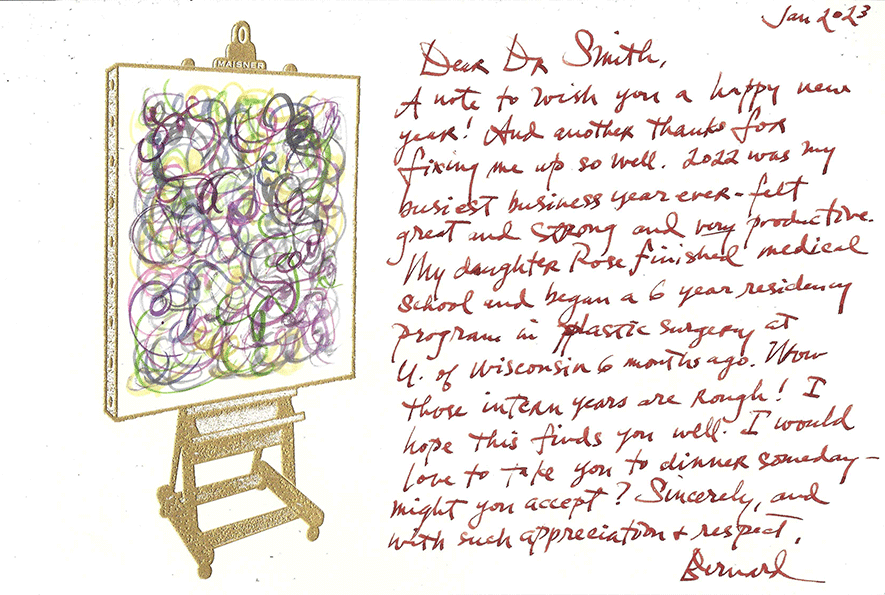 MAISNER
Jan 2023
Dear Dr Smith,
A note to wish you a happy new
year! And another thanks for
fixing me up so well. 2022 was my
busiest business year ever-felt
great and strong and very productive.
My daughter Rose finished medical
school and began a 6 year residency
program in plastic surgery at
U. of Wisconsin 6 months ago. Wow
those intern years are rough! I
hope this finds you well. I would
love to take you to dinner someday-
might you accept? Sincerely, and
with such appreciation + respect,
Bernard